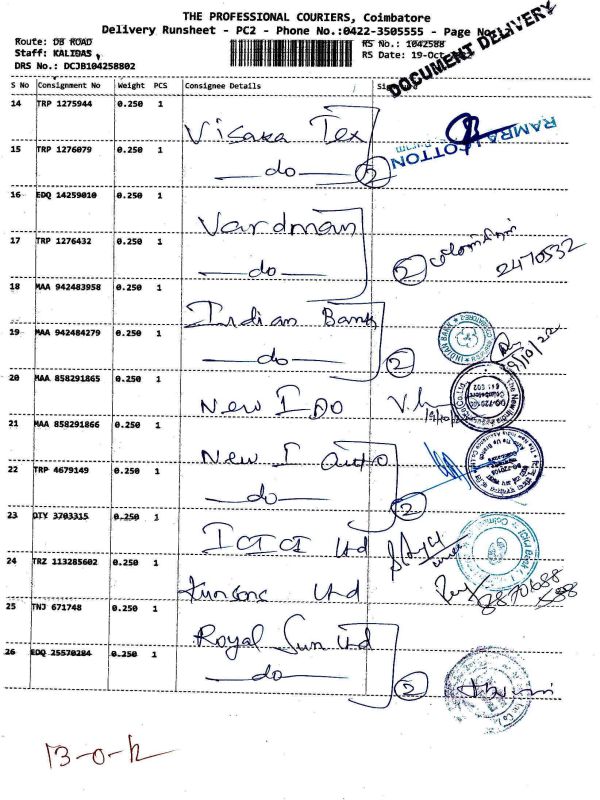 THE PROFESSIONAL COURIERS, Coimbatore
Delivery Runsheet - PC2 - Phone No.:0422-3505555 - Page No.
DOCUMENT DELIVERY
Route: DB ROAD RS No.: 1042588
Staff: KALIDAS RS Date: 19-Oct-
DRS No.: DCJB104258802
S No Consignment No Weight PCS Consignee Details Si
14 TRP 1275944 0.250 1 Visaka Tex
RAMRAJ COTTON
15 TRP 1276079 0.250 1 —do— 2
16 EDQ 14259010 0.250 1 Vardman
17 TRP 1276432 0.250 1 —do— 2 2470532
18 MAA 942483958 0.250 1 Indian Bank
19 MAA 942484279 0.250 1 —do— 2 19/10/22
20 MAA 858291865 0.250 1 New I DO
21 MAA 858291866 0.250 1 New I Auto
22 TRP 4679149 0.250 1 —do— 2
23 DTY 3703315 0.250 1 ICICI Ltd
24 TRZ 113285602 0.250 1 Ltd
25 TNJ 671748 0.250 1 Royal Sun Ltd
26 EDQ 25570284 0.250 1 —do— 2